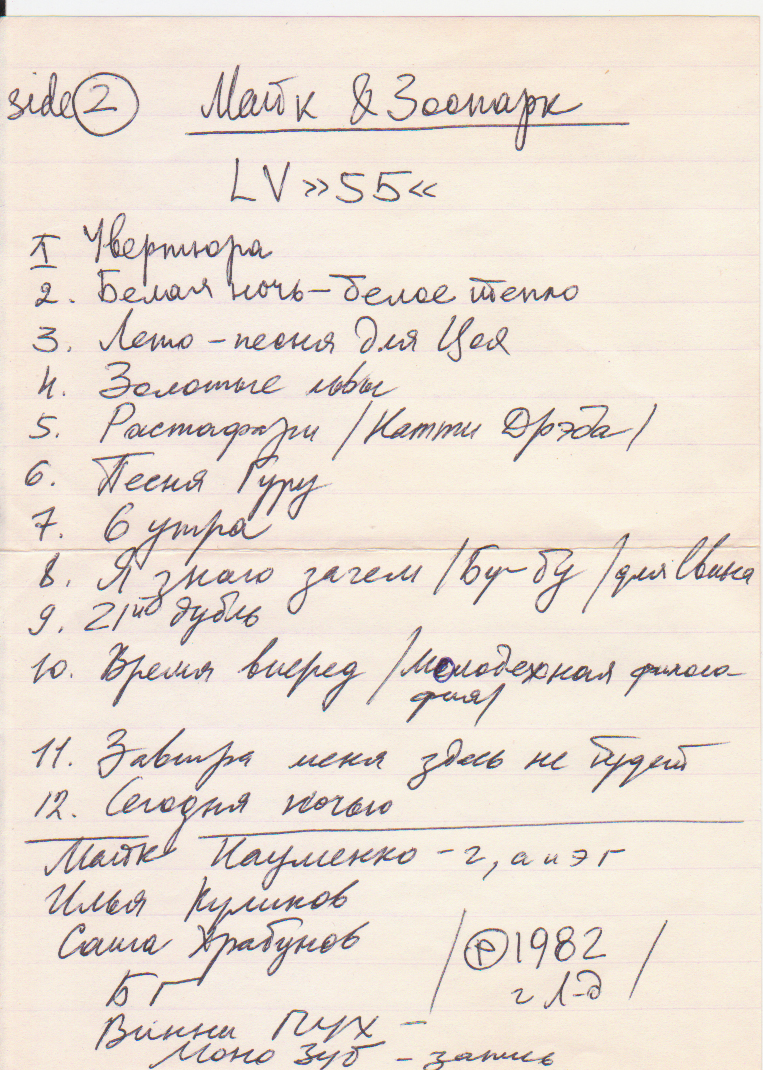 side 2 Майк & Зоопарк
LV »55«
1 Увертюра
2. Белая ночь – белое тепло
3. Лето – песня для Цоя
4. Золотые львы
5. Растафари /Натти Дрэда/
6. Песня Гуру
7. 6 утра
8. Я знаю зачем /Бу-бу/ для Свина
9. 21ый дубль
10. Время вперед /Молодежная филосо-
фия/
11. Завтра меня здесь не будет
12. Сегодня ночью
Майк Науменко – г, а и э г
Илья Куликов
Саша Храбунов
/ Ⓟ 1982 /
г Л-д
БГ
Винни Пух –
Моно Зуб – запись